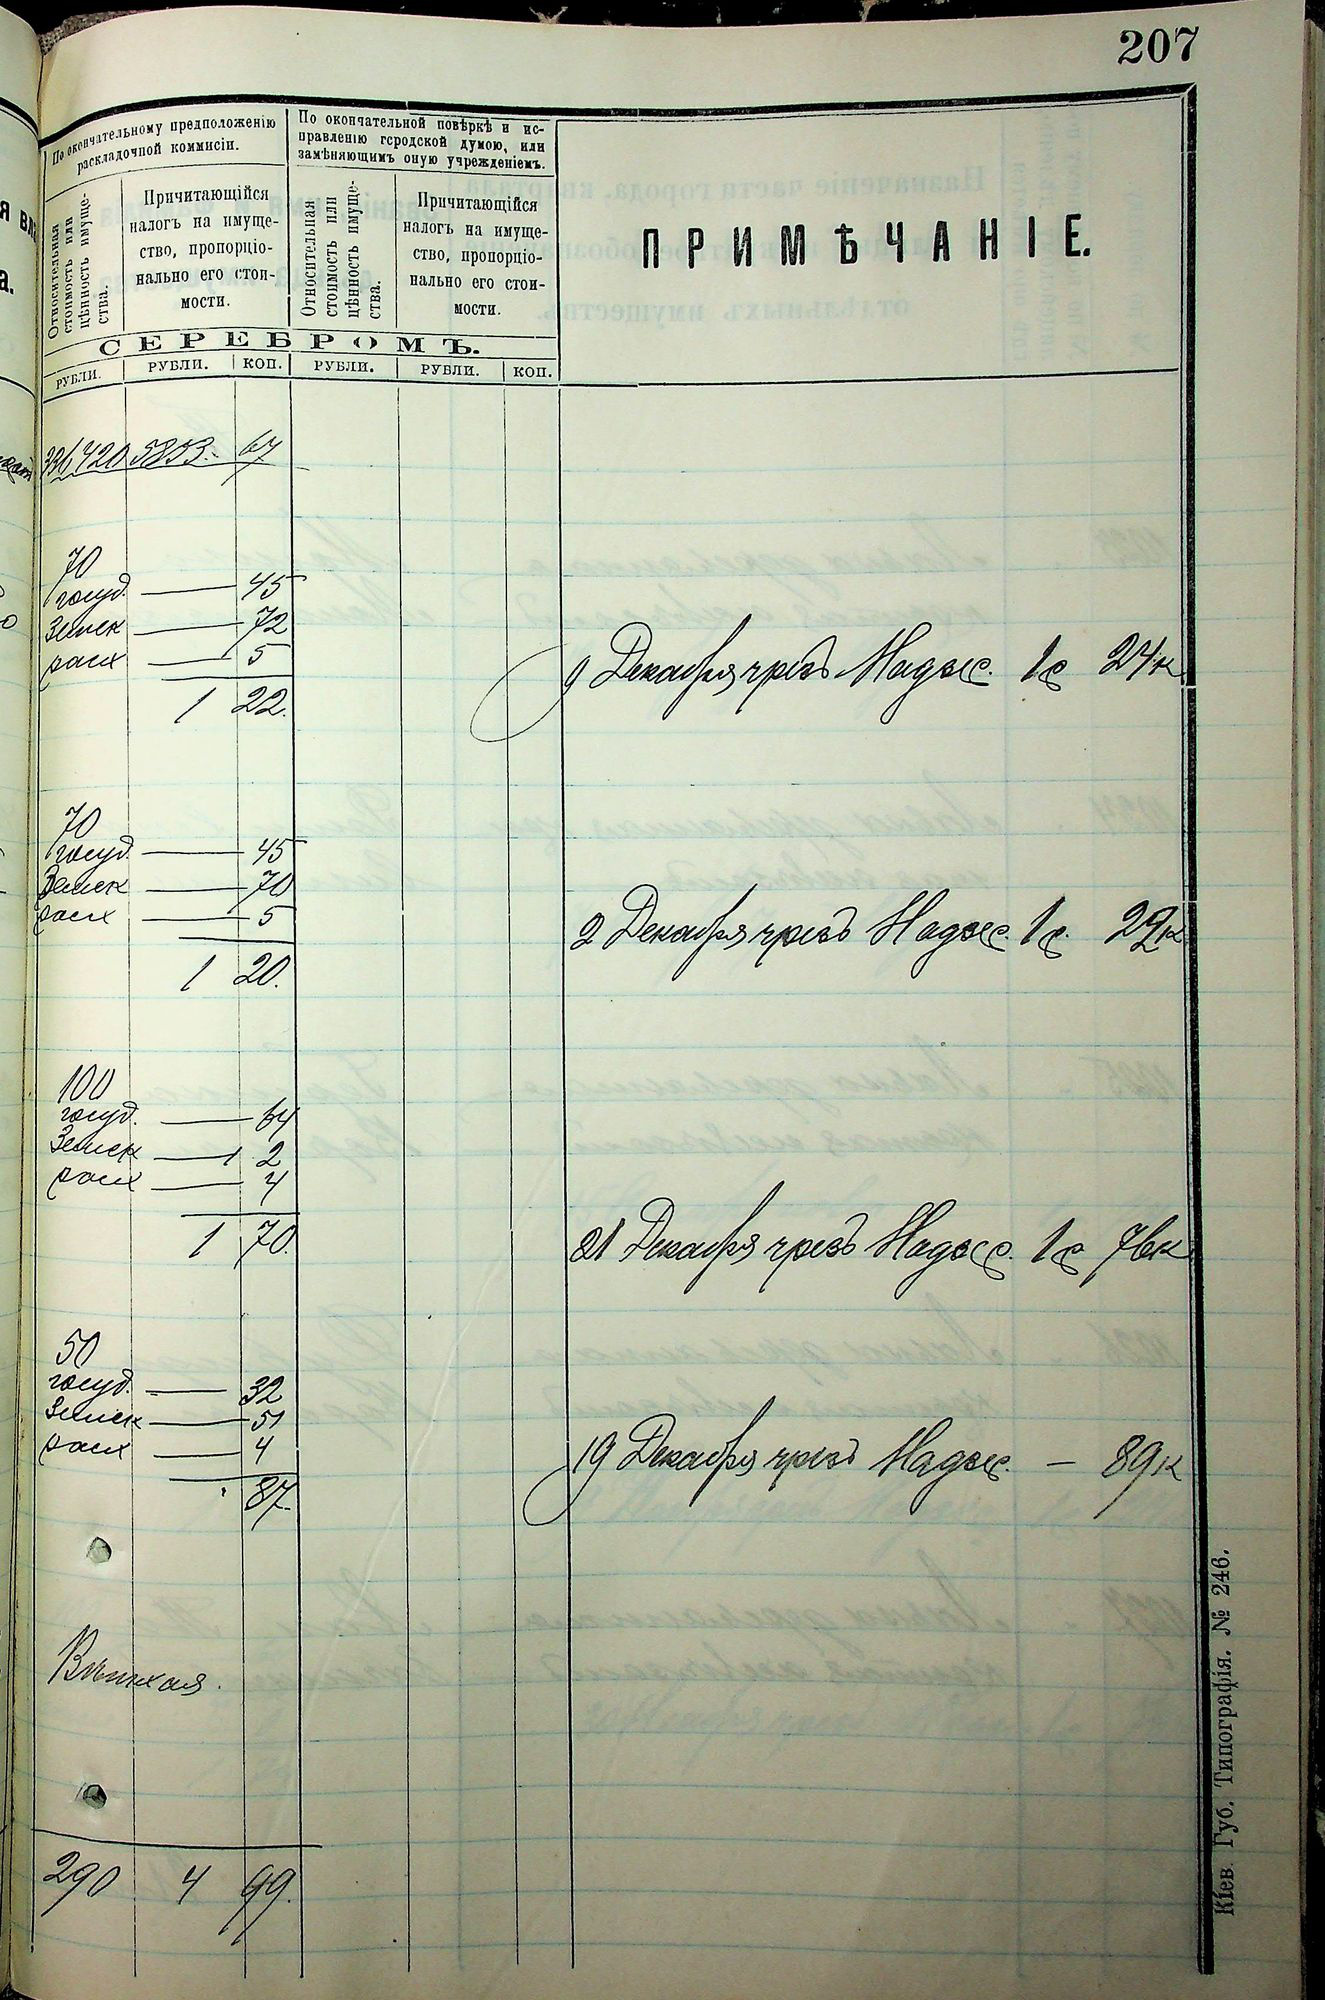 207
По окончательному предположенію
раскладочной коммисіи.
По окончательной повѣркѣ и ис-
правленію городской думою, или
замѣняющимъ оную учрежденіемъ.
Относительная
стоимость или
цѣнность имуще-
ства.
Причитающійся
налогъ на имуще-
ство, пропорціо-
нально его стои-
мости.
Относительная
стоимость или
цѣнность имуще-
ства.
Причитающійся
налогъ на имуще-
ство, пропорціо-
нально его стои-
мости.
ПРИМѢЧАНІЕ.
СЕРЕБРОМЪ.
РУБЛИ. РУБЛИ. КОП. РУБЛИ. РУБЛИ. КОП.
5803. 67
70
госуд. — 45
Земск — 72
расх — 5
1 22.
9 Декабря чрезъ Надзс. 1р 24к
70
госуд. — 45
Земск — 70
расх — 5
1 20.
2 Декабря чрезъ Надзс. 1р. 22к
100
госуд. — 64
Земск — 1 2
расх — 4
1 70.
21 Декабря чрезъ Надзс. 1р 76к
50
госуд. — 32
Земск — 51
расх — 4
87.
19 Декабря чрезъ Надзс. — 89к
Ветхая.
290 4 99.
Кіев. Губ. Типографія. № 246.